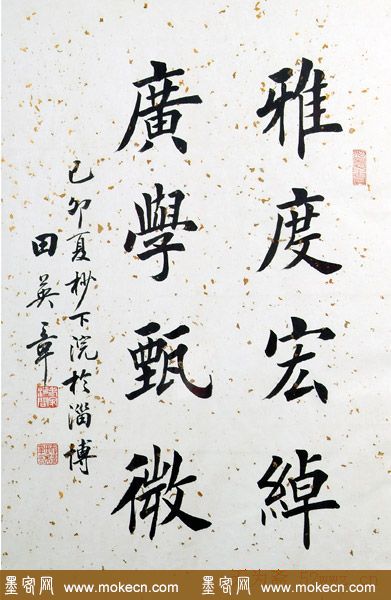 雅度宏綽
廣學甄微
己卯夏杪下浣於淄博
田英章
墨客网 www.mokecn.com 墨客网 www.mokecn.com